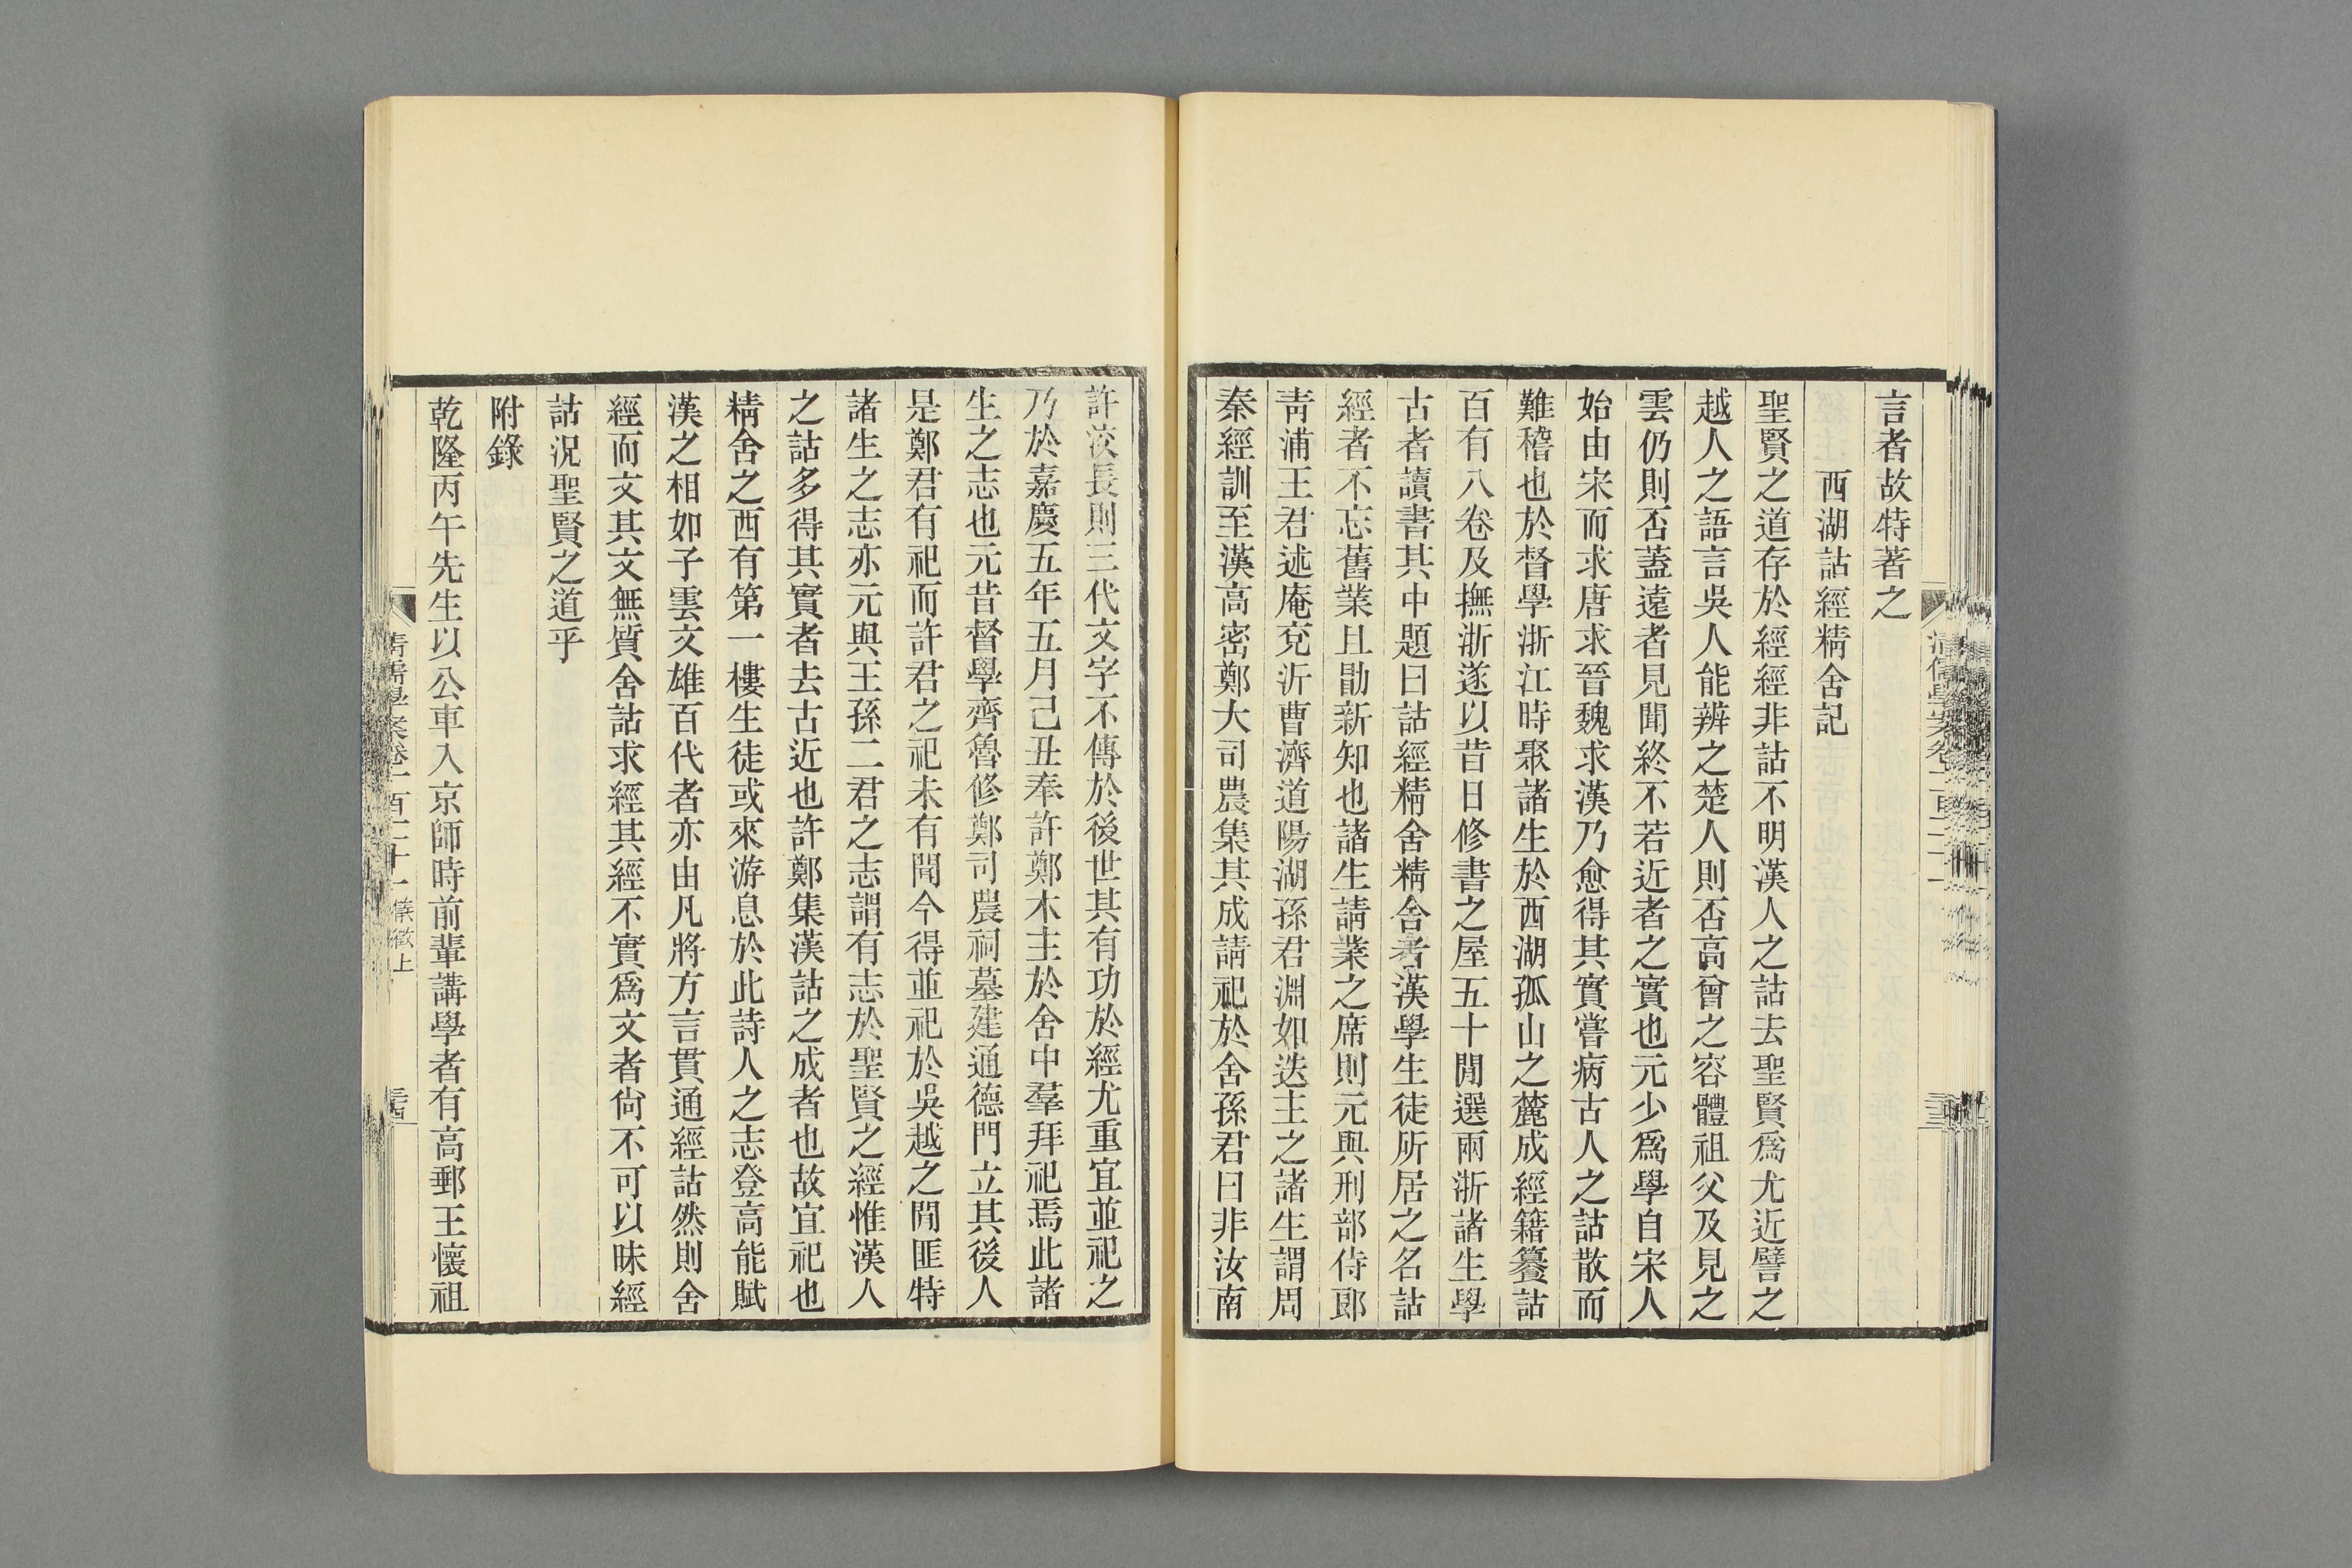 言者故特著之
西湖詁經精舍記
聖賢之道存於經經非詁不明漢人之詁去聖賢爲尤近譬之
越人之語言吳人能辨之楚人則否高曾之容體祖父及見之
雲仍則否蓋遠者見聞終不若近者之實也元少爲學自宋人
始由宋而求唐求晉魏求漢乃愈得其實嘗病古人之詁散而
難稽也於督學浙江時聚諸生於西湖孤山之麓成經籍籑詁
百有八卷及撫浙遂以昔日修書之屋五十閒選兩浙諸生學
古者讀書其中題曰詁經精舍精舍者漢學生徒所居之名詁
經者不忘舊業且勖新知也諸生請業之席則元與刑部侍郎
靑浦王君述庵兗沂曹濟道陽湖孫君淵如迭主之諸生謂周
秦經訓至漢高密鄭大司農集其成請祀於舍孫君曰非汝南
許洨長則三代文字不傳於後世其有功於經尤重宜並祀之
乃於嘉慶五年五月己丑奉許鄭木主於舍中羣拜祀焉此諸
生之志也元昔督學齊魯修鄭司農祠墓建通德門立其後人
是鄭君有祀而許君之祀未有聞今得並祀於吳越之閒匪特
諸生之志亦元與王孫二君之志謂有志於聖賢之經惟漢人
之詁多得其實者去古近也許鄭集漢詁之成者也故宜祀也
精舍之西有第一樓生徒或來游息於此詩人之志登高能賦
漢之相如子雲文雄百代者亦由凡將方言貫通經詁然則舍
經而文其文無質舍詁求經其經不實爲文者尙不可以昧經
詁況聖賢之道乎
附錄
乾隆丙午先生以公車入京師時前輩講學者有高郵王懷祖
清儒學案卷一百二十一 儀徵上